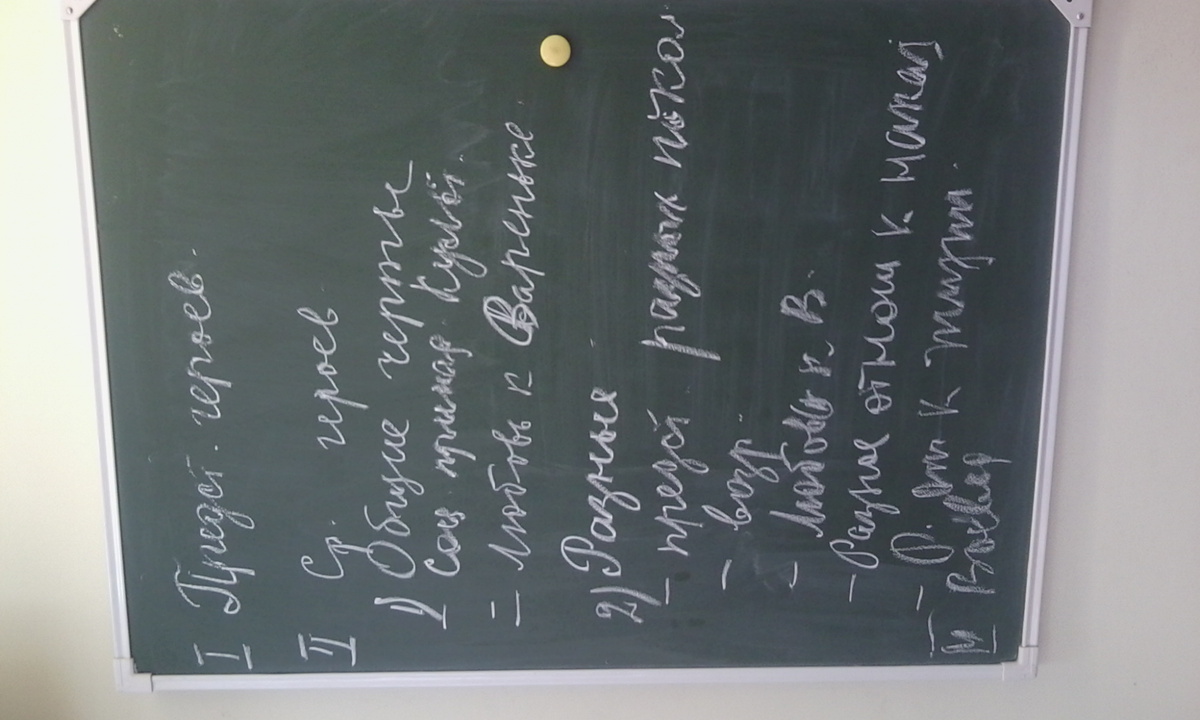 I Предст. героев.
II Ср. героев
1) Общие черты
Соц. принад. Культ.
- любовь к Вареньке.
2) Разные
- предст. разных покол.
- возр.
- Любовь к В.
- Разное отнош к
- О. к жизни.
Вывод